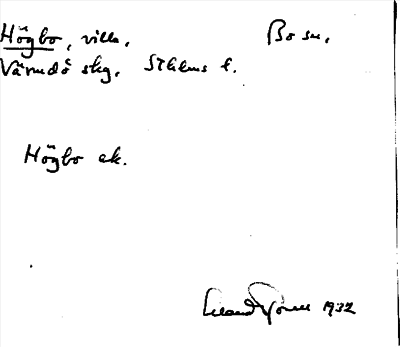 Högbo, villa. Bo sn.
Värmdö skg. Sthlms l.
Högbo ek.
1932